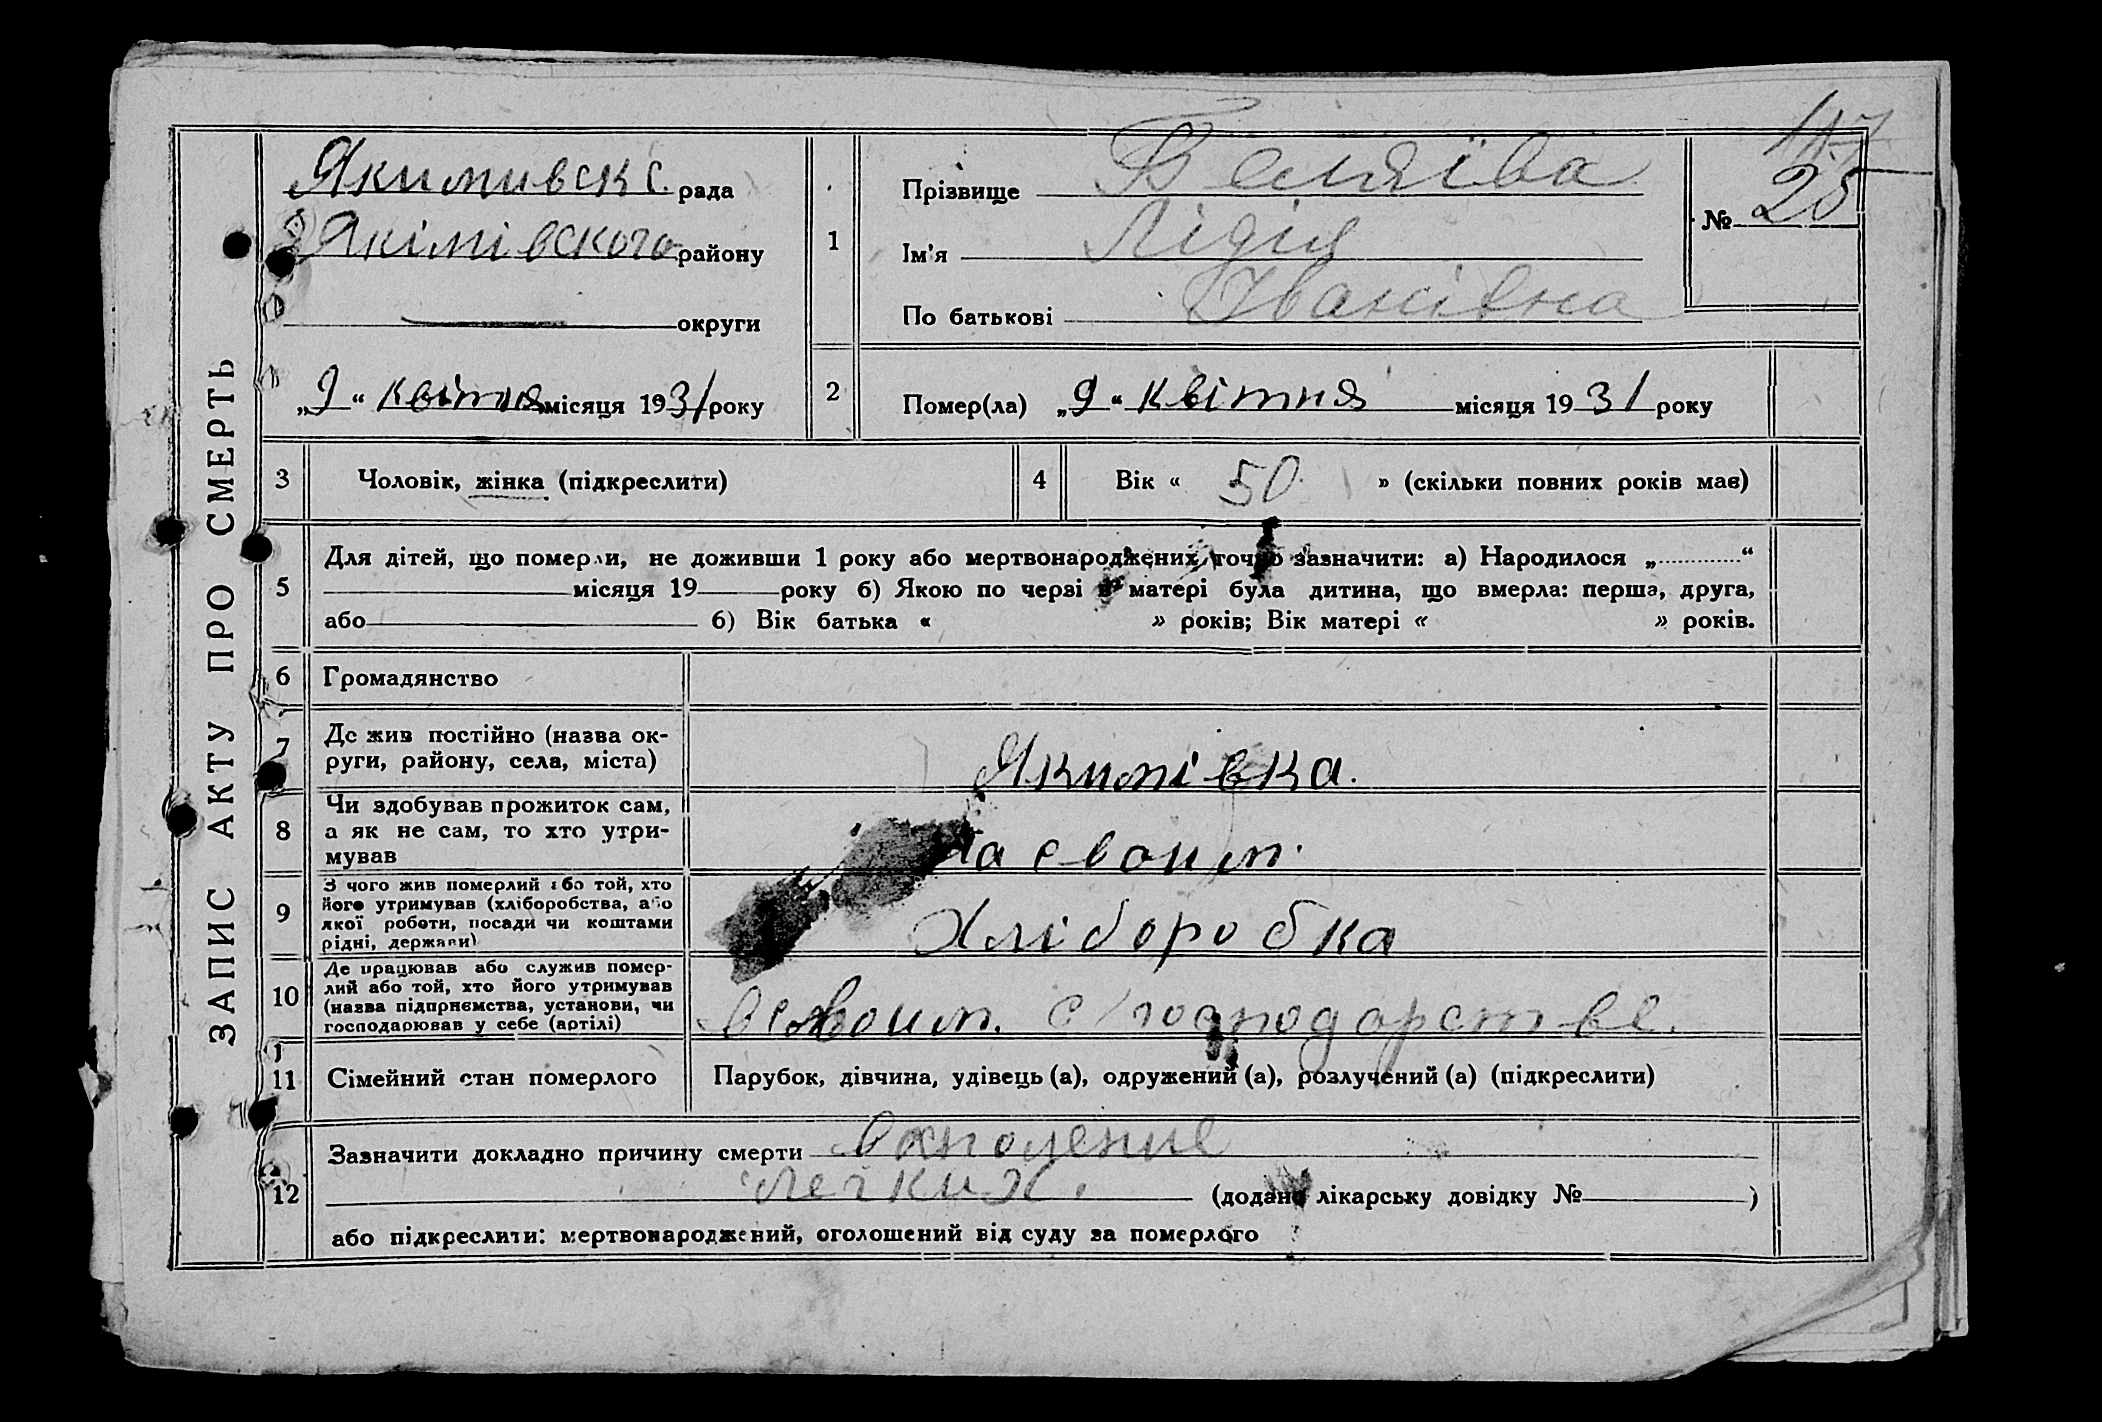 ЗАПИС АКТУ ПРО СМЕРТЬ
Якимивск с. рада
Якімівского району
округи
„9“ квітня місяця 1931 року
117
№ 25
1
Прізвище Беляїва
Ім'я Лідія
По батькові Іванівна
2
Помер(ла) „9“ квітня місяця 1931 року
3
Чоловік, жінка (підкреслити)
4
Вік « 50 » (скільки повних років має)
5
Для дітей, що померли, не доживши 1 року або мертвонароджених точно зазначити: а) Народилося „ “
місяця 19 року б) Якою по черзі в матері була дитина, що вмерла: перша, друга,
або б) Вік батька « » років; Вік матері « » років.
6
Громадянство
7
Де жив постійно (назва ок-
руги, району, села, міста)
Якимівка.
8
Чи здобував прожиток сам,
а як не сам, то хто утри-
мував
На своим.
9
З чого жив померлий або той, хто
його утримував (хліборобства, або
якої роботи, посади чи коштами
рідні, держави)
Хліборобка
10
Де працював або служив помер-
лий або той, хто його утримував
(назва підприємства, установи, чи
господарював у себе (артілі)
в своим. с/господарстве.
11
Сімейний стан померлого
Парубок, дівчина, удівець (а), одружений (а), розлучений (а) (підкреслити)
12
Зазначити докладно причину смерти вхполение
легких.
(додано лікарську довідку № )
або підкреслити: мертвонароджений, оголошений від суду за померлого